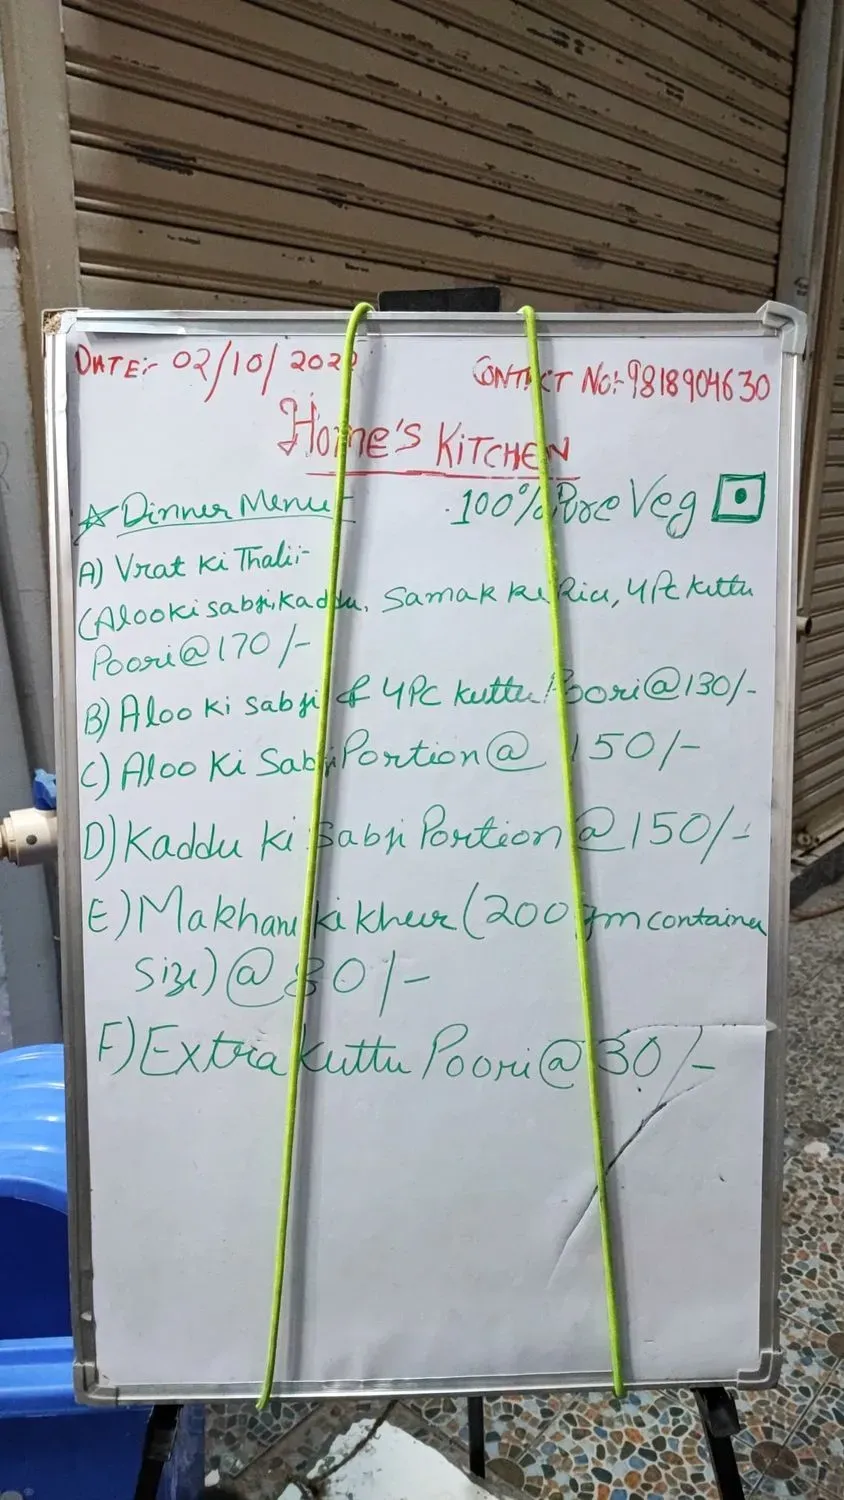 DATE:- 02/10/202
CONTACT No:- 9818904630
Home's KITCHEN
☆ Dinner Menu:-
100% Pure Veg
A) Vrat ki Thali:-
(Aloo ki sabji, kaddu, Samak ke Rice, 4 Pc kuttu
Poori @ 170/-
B) Aloo ki sabji & 4PC kuttu Poori @ 130/-
C) Aloo ki Sabji Portion @ 150/-
D) Kaddu ki Sabji Portion @ 150/-
E) Makhane ki kheer (200 gm container
Size) @ 80/-
F) Extra kuttu Poori @ 30/-